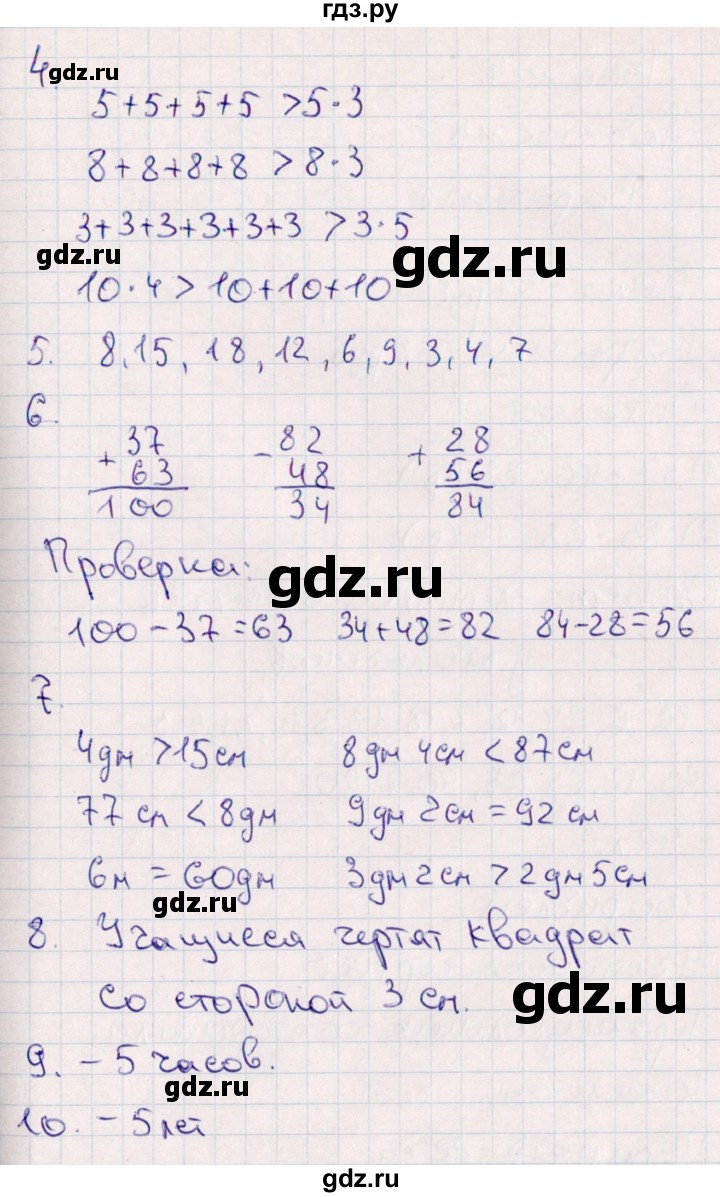 гдз.ру
4.
gdz.ru
5+5+5+5 > 5·3
8+8+8+8 > 8·3
3+3+3+3+3+3 > 3·5
gdz.ru
gdz.ru
10·4 > 10+10+10
5. 8, 15, 18, 12, 6, 9, 3, 4, 7
6.
+ 37 - 82 + 28
63 48 56
100 34 84
Проверка:
gdz.ru
100-37=63 34+48=82 84-28=56
7.
4дм > 15см 8дм 4см < 87см
77 см < 8дм 9дм 2см = 92 см
6м = 60дм 3дм 2см > 2дм 5см
gdz.ru
8. Учащиеся чертят квадрат
со стороной 3 см.
gdz.ru
9. - 5 часов.
gdz.ru
10. - 5 лет
gdz.ru